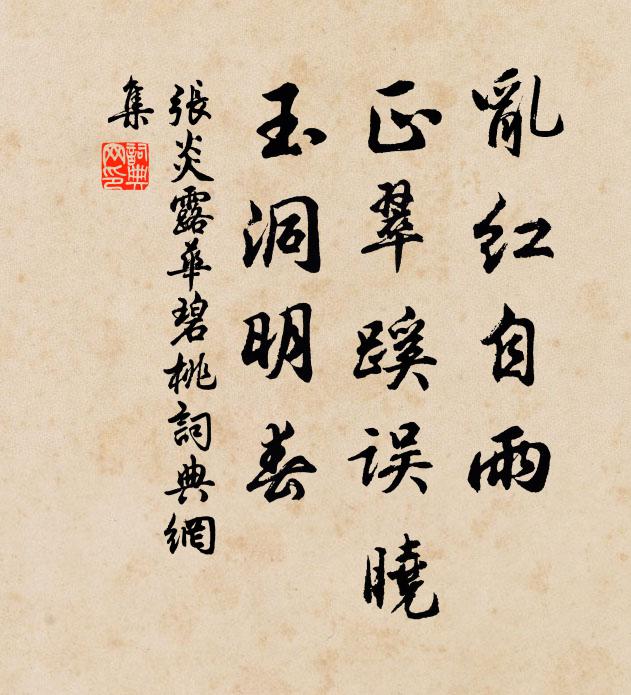 亂红自雨
正翠蹊误曉
玉洞明春
張炎露華碧桃詞典網
集
詞典網印